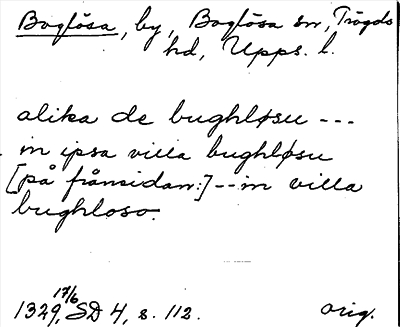 Boglösa, by, Boglösa sn, Trögds
hd, Upps. l.
alika de bughløsu ---
in ipsa villa bughløsu
[på frånsidan:] -- in villa
bughloso.
1329 17/6, SD 4, s. 112. orig.